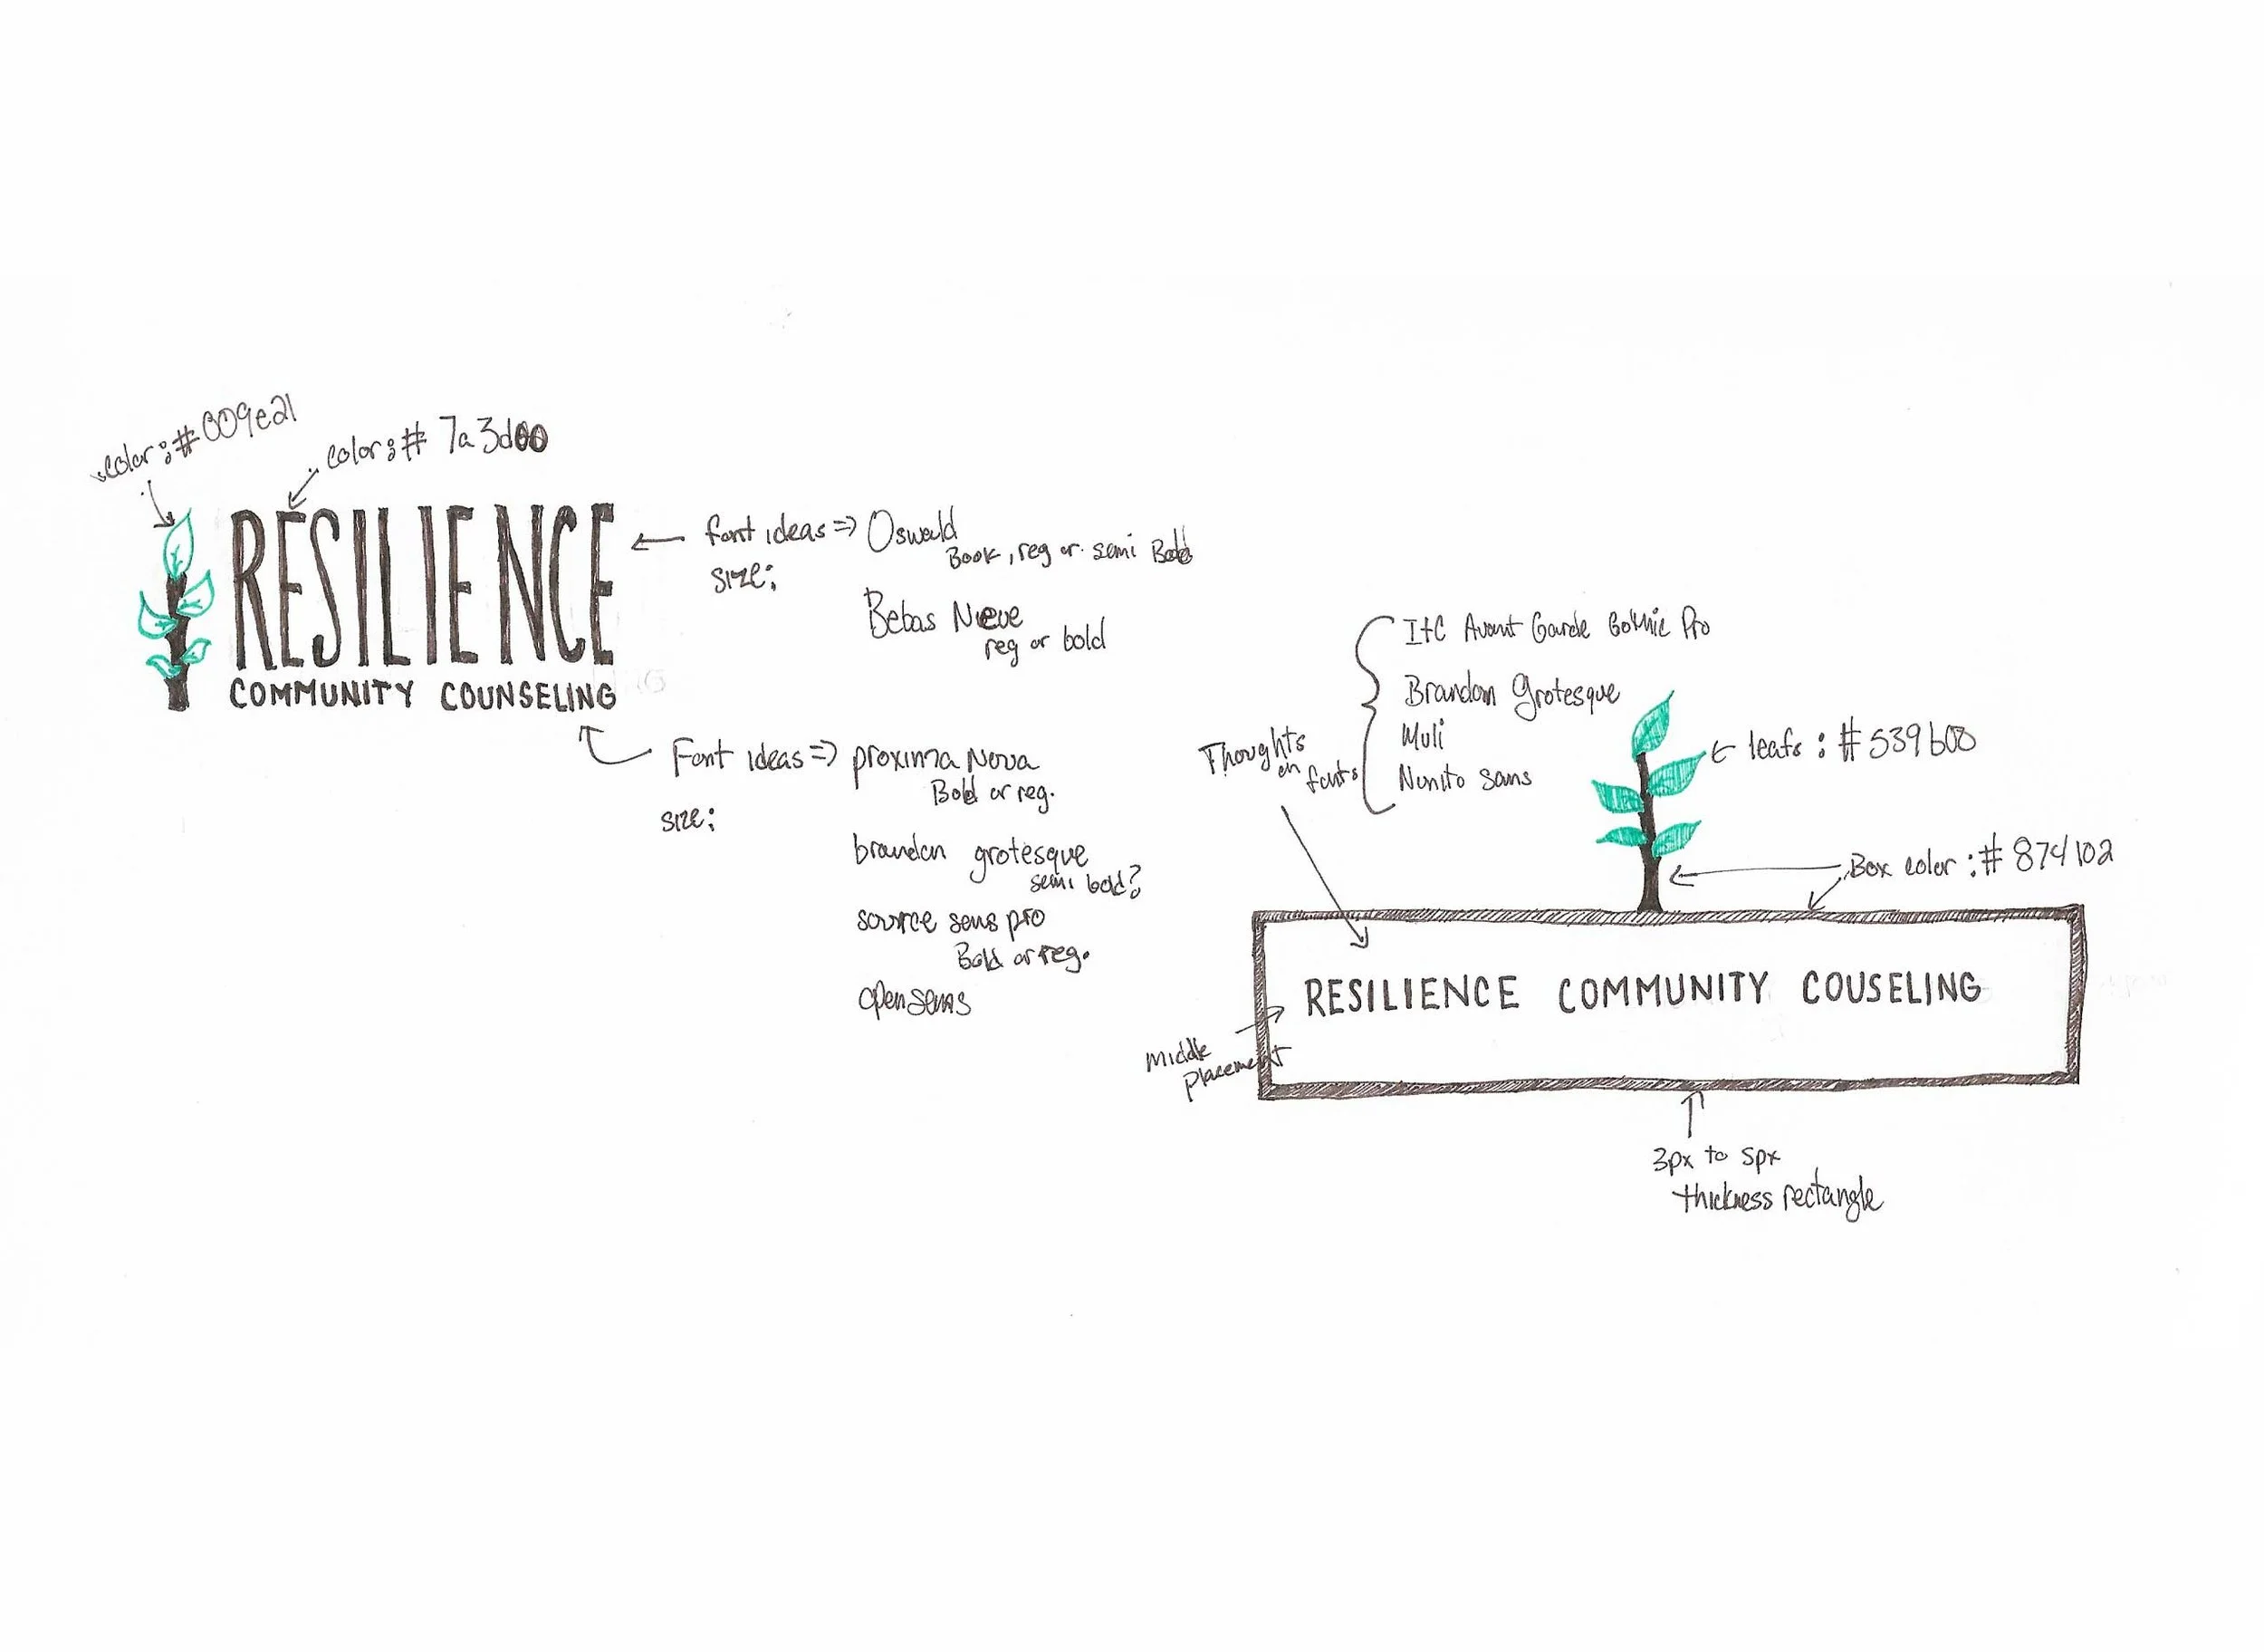 color:#009e21
color:# 7a3d00
RESILIENCE
COMMUNITY COUNSELING
font ideas => Oswald
Book, reg or semi Bold
size:
Bebas Nueve
reg or bold
Font ideas => proxima Nova
Bold or reg.
size:
brandon grotesque
semi bold?
source sans pro
Bold or reg.
open sans
Thoughts
on
fonts
Itc Avant Garde Gothic Pro
Brandon Grotesque
Muli
Nunito Sans
leafs : # 539b00
Box color :# 874102
RESILIENCE COMMUNITY COUSELING
middle
placement
3px to 5px
thickness rectangle